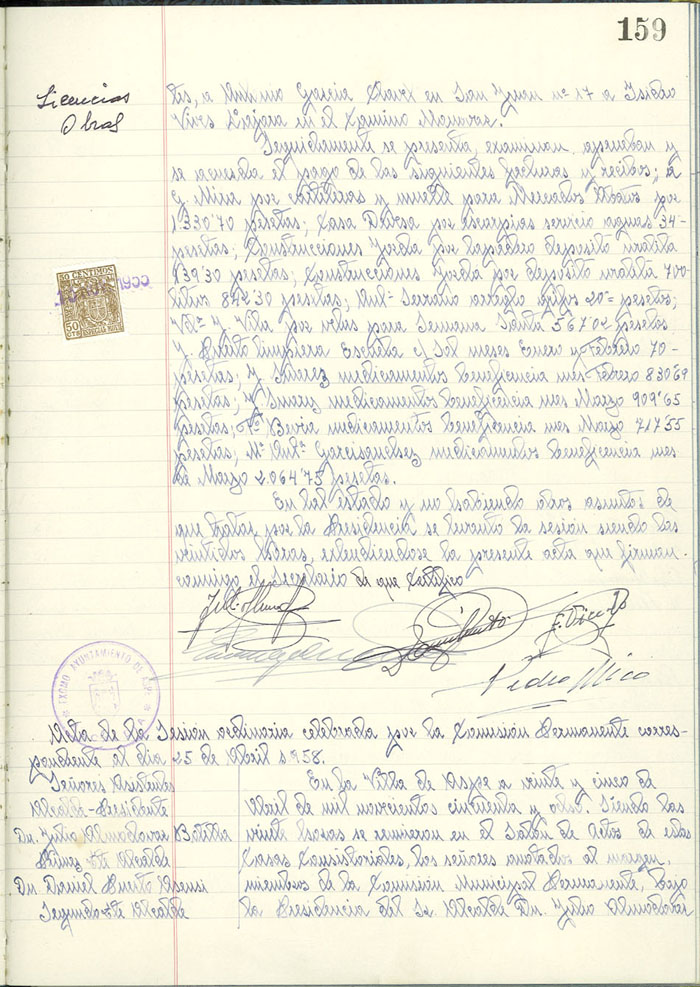 159
Licencias
Obras
tes, a Antonio Garcia en San Juan nº 17 a Isidro
Vives en el Camino Monovar.
Seguidamente se presenta, examinan, aprueban y
se acuerda el pago de las siguientes facturas y recibos; a
y Mira por y muelle para Mercados Abastos por
1.330'70 pesetas; Casa Davsa por escarpias servicio aguas 34-
pesetas; Construcciones por deposito
839'30 pesetas; Construcciones por deposito 700-
litros 842'30 pesetas; Antº Serrano arreglo grifos 20= pesetas;
y Vila por velas para Semana Santa 567'02 pesetas
limpieza Escuela el Sol meses Enero y Febrero 70-
pesetas; y Suarez medicamentos beneficencia mes Febrero 830'69
pesetas; y Suarez medicamentos beneficencia mes Marzo 909'65
pesetas; Bevia medicamentos beneficencia mes Marzo 717'55
pesetas, Mª Antª medicamentos beneficencia mes
de Marzo 2.064'75 pesetas.
En tal estado y no habiendo otros asuntos de
que tratar, por la Presidencia se levanto la sesión siendo las
veintidos horas, extendiendose la presente acta que firman
conmigo el Secretario de que Certifico
Pedro Mico
50 CENTIMOS
50
EXCMO AYUNTAMIENTO DE
Acta de la Sesión ordinaria celebrada por la Comisión Permanente corres-
pondiente al dia 25 de Abril 1.958.
Señores Asistentes
Alcalde-Presidente
Dn. Julio Almodovar Botella
Primer tte Alcalde
Dn. Daniel Puerto Asensi
Segundo tte Alcalde
En la Villa de Aspe a veinte y cinco de
Abril de mil novecientos cincuenta y ocho. Siendo las
veinte horas se reunieron en el Salón de Actos de estas
Casas Consistoriales, los señores anotados al margen,
miembros de la Comisión Municipal Permanente, bajo
la Presidencia del Sr. Alcalde Dn. Julio Almodovar